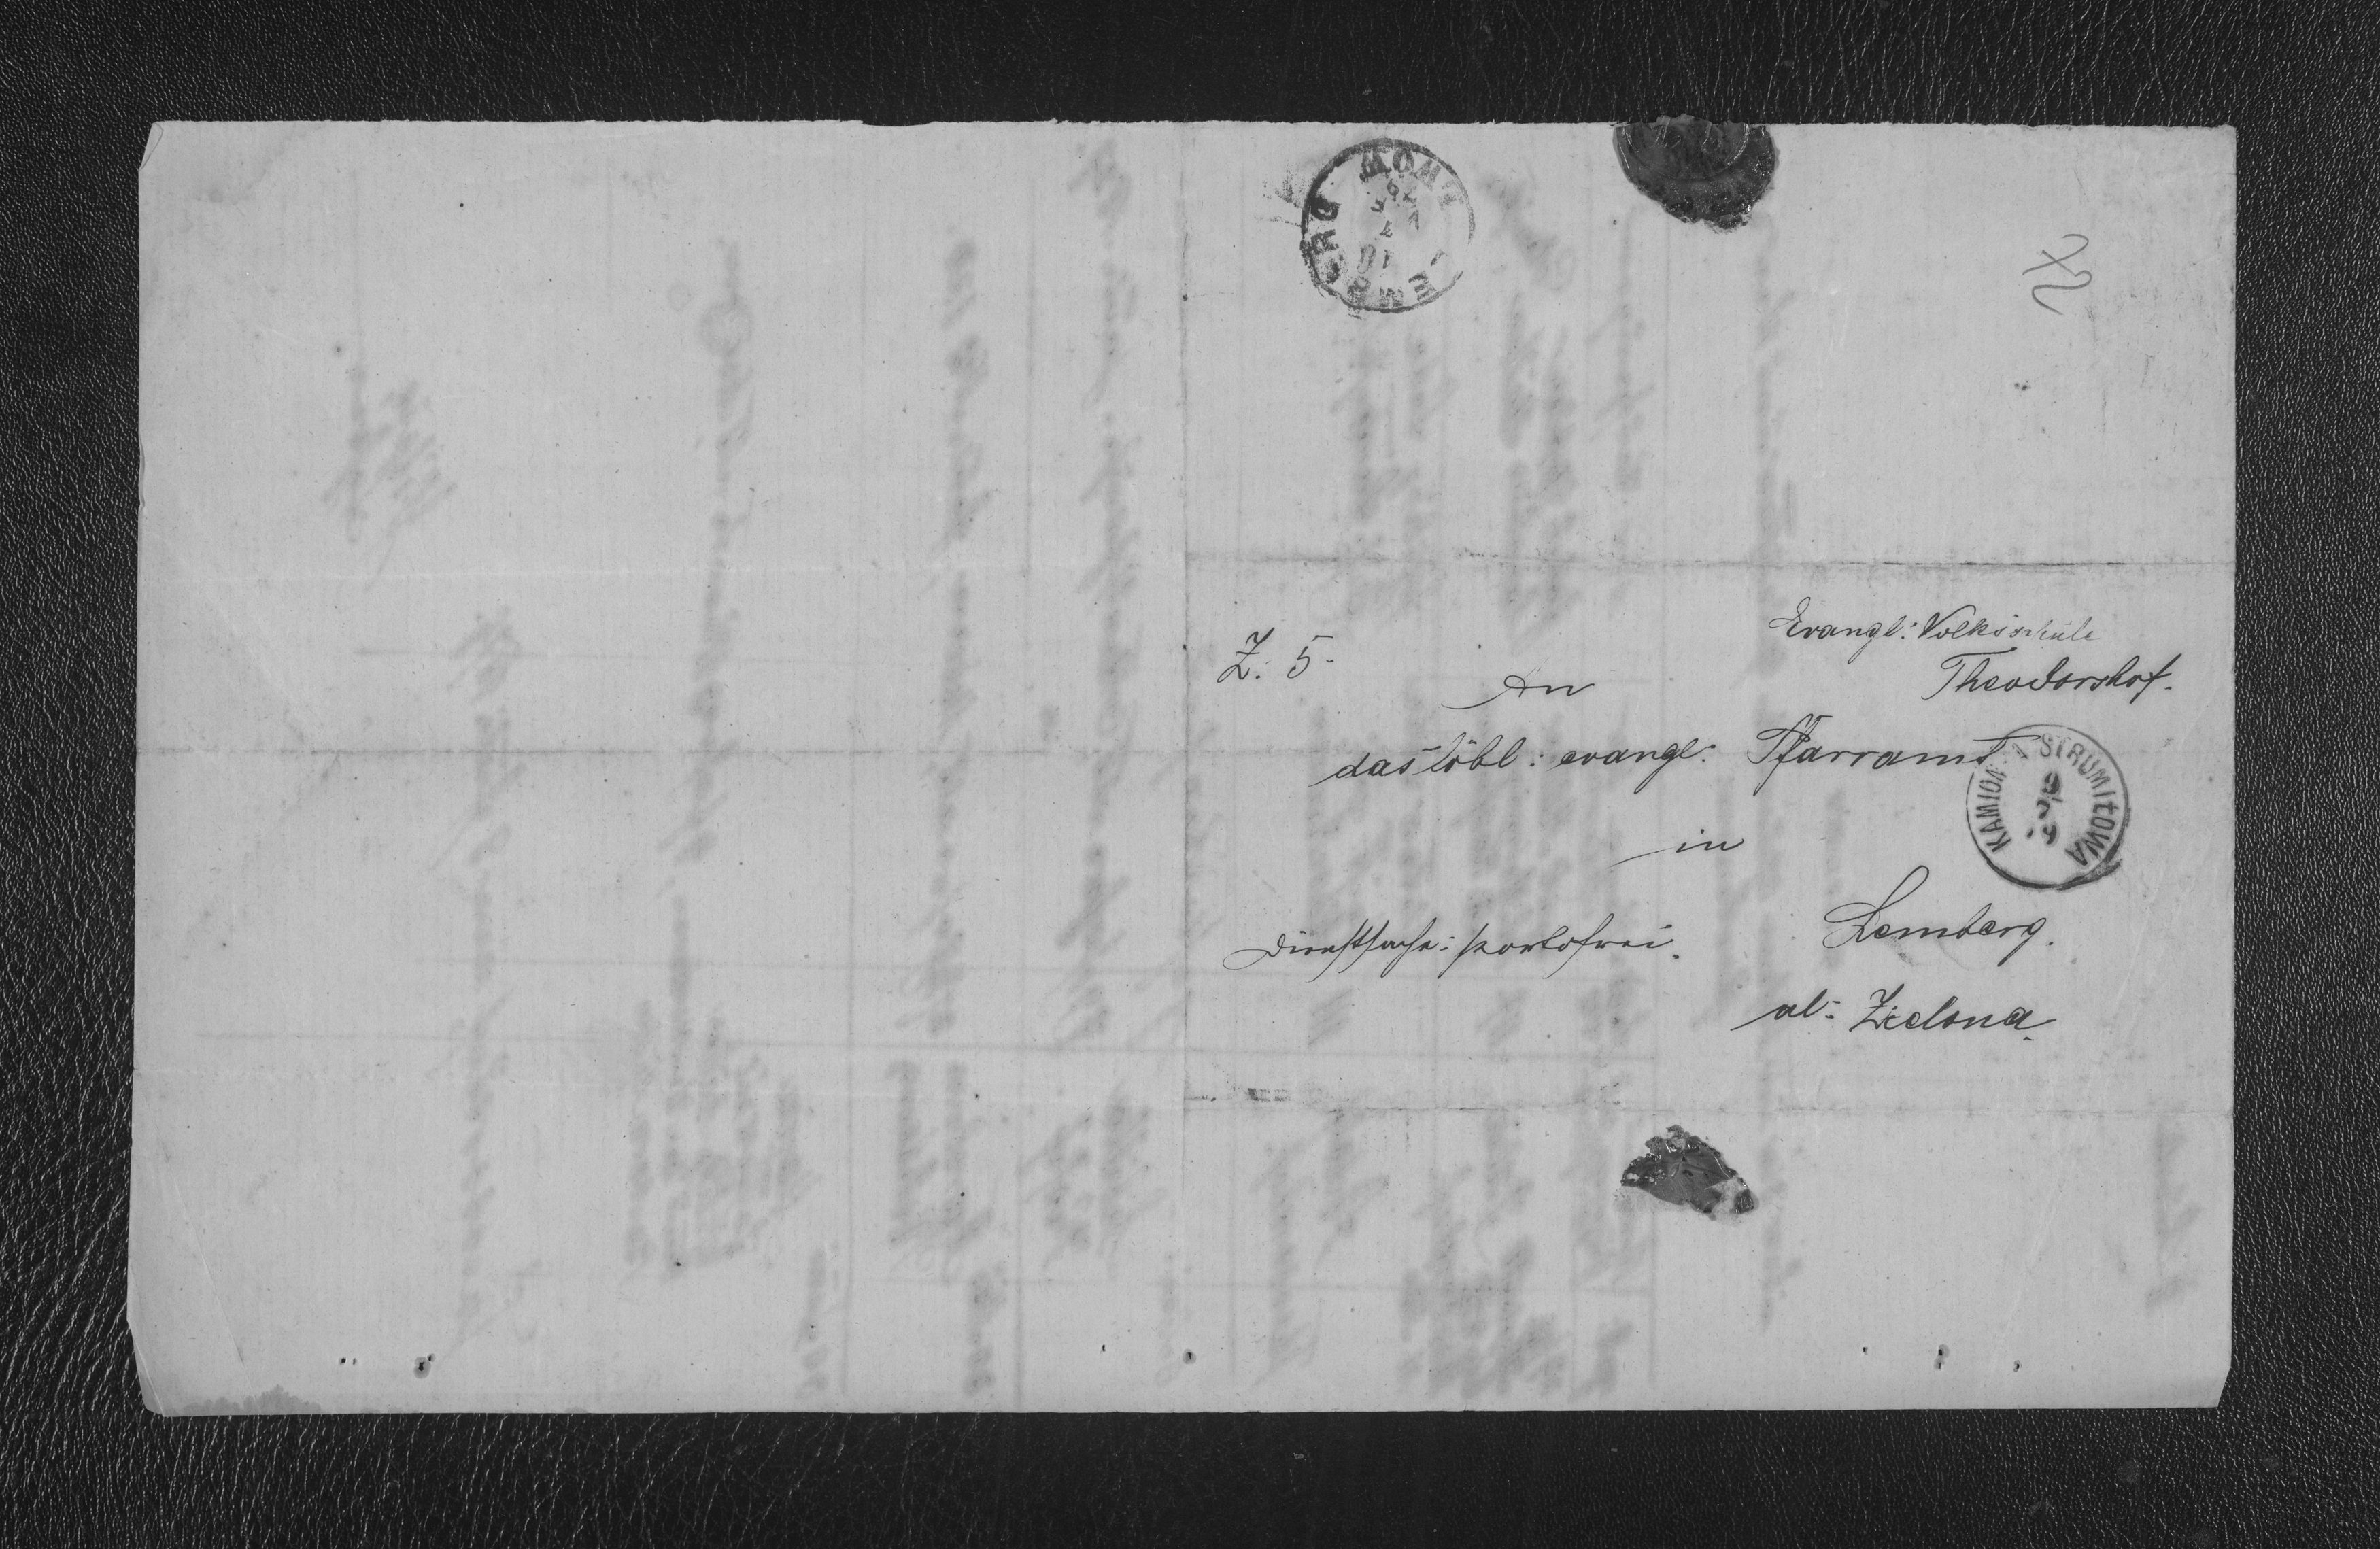 LEMBERG LWÓW
Evangl: Volksschule
Theodorshof.
Z: 5.
An
das löbl: evangl: Pfarramt
KAMIONKA STRUMIŁOWA
in
Lemberg.
Dienstsache: portofrei.
ul: Zielona